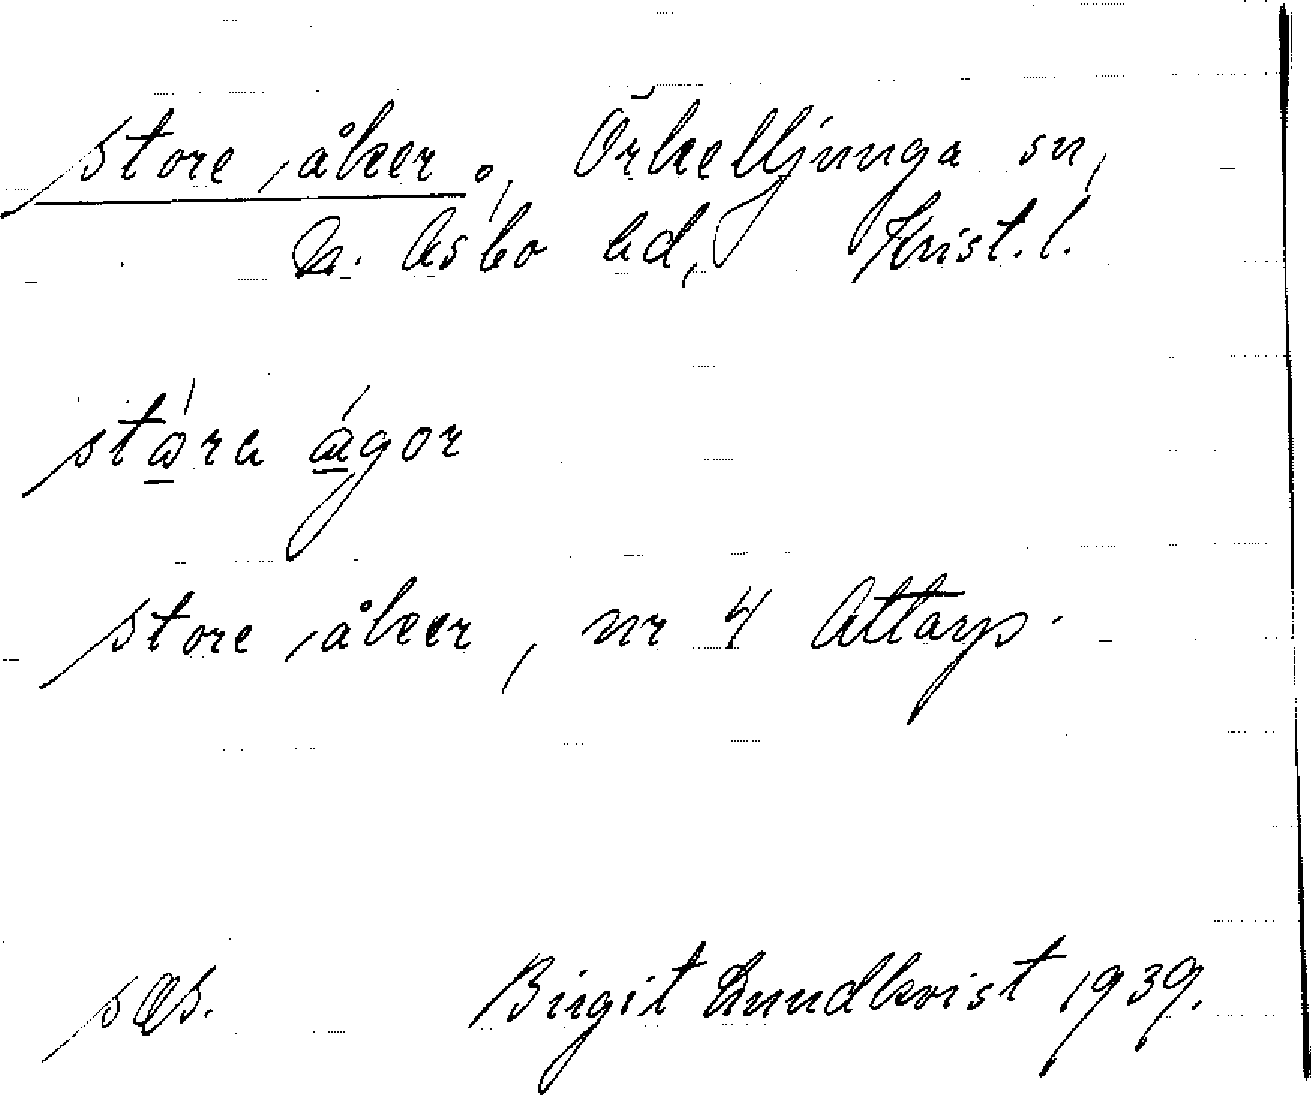 store åker, Örkelljunga sn,
N. Åsbo hd, Krist. l.
stɷ́ra ágor
store åker, nr 4 Attarp.
Birgit Lundkvist 1939.